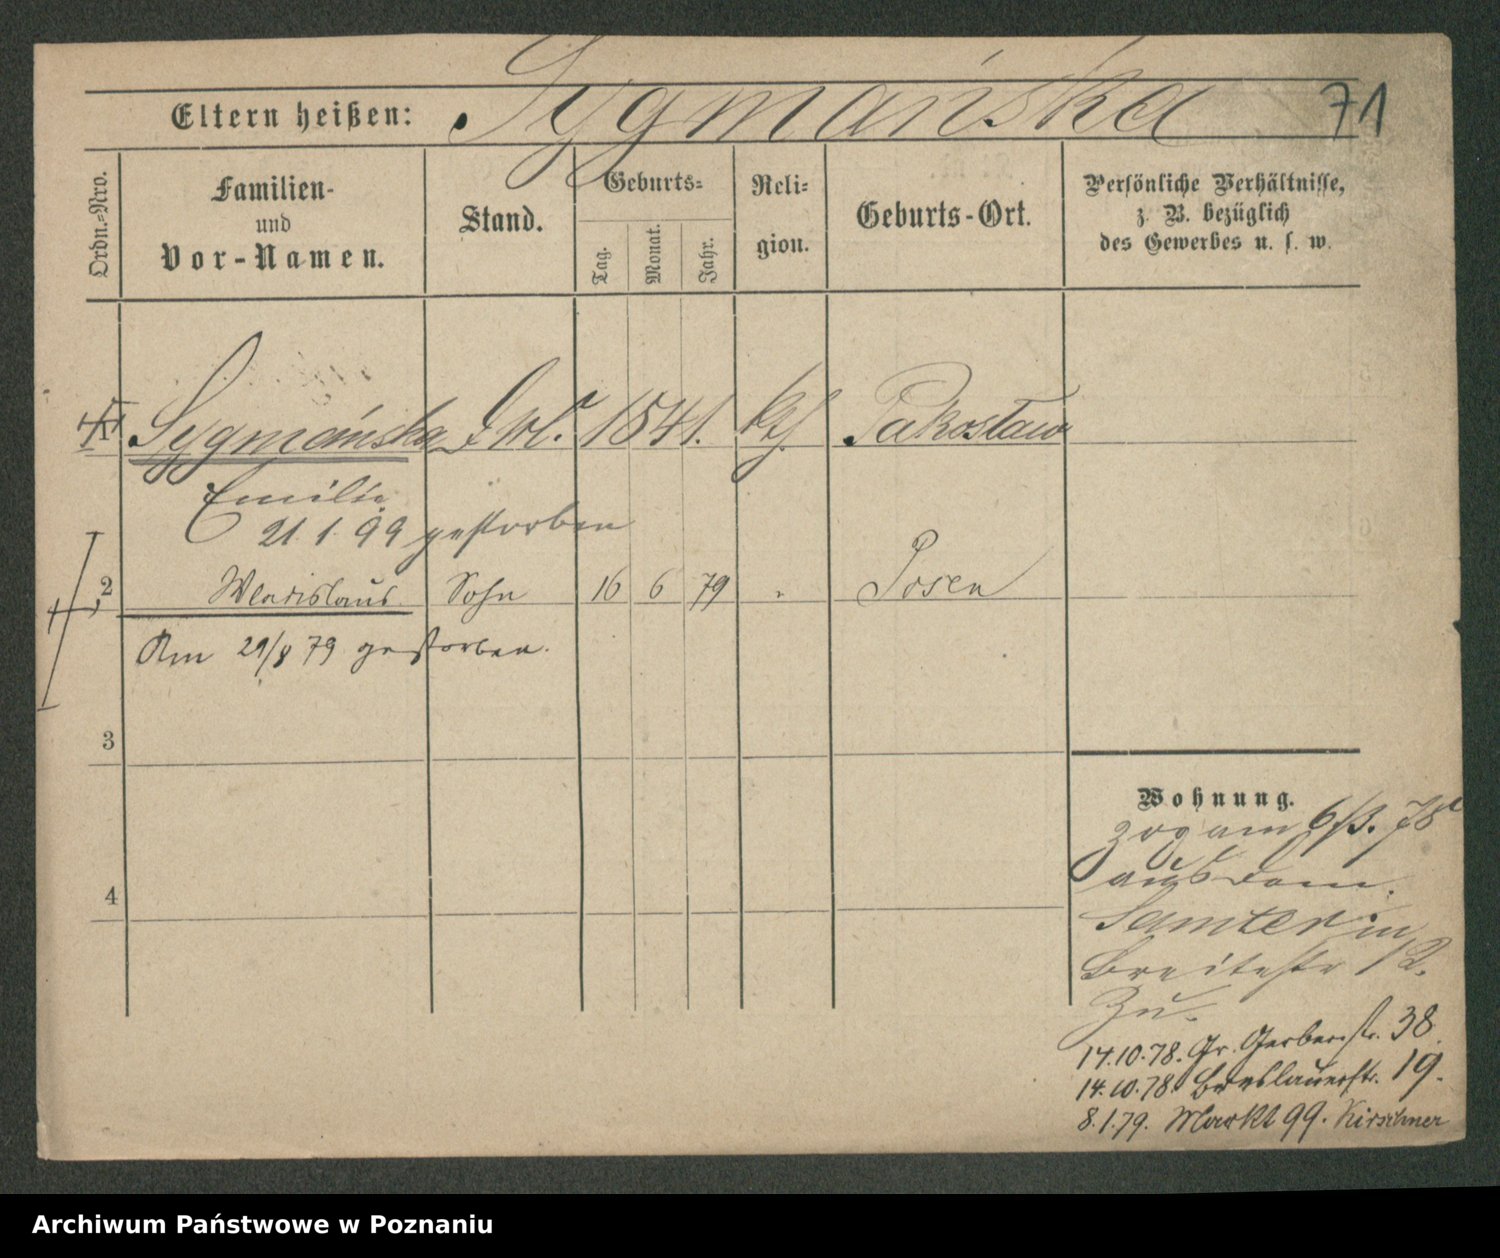 Eltern heißen: Sygmańska 71
Ordn.-Nro.
Familien-
und
Vor-Namen.
Stand.
Geburts-
Tag.
Monat.
Jahr.
Reli-
gion.
Geburts-Ort.
Persönliche Verhältnisse,
z. B. bezüglich
des Gewerbes u. s. w.
Sygmańska 1841. kf Pakosław
Emilie
21. 1. 99 gestorben
2 Wladislaus Sohn 16 6 79 " Posen
Am 29/8 79 gestorben.
3
4
Wohnung.
zog am 78
aus dom.
Samter in
Breitestr 12.
zu.
14.10.78. Gr. Gerberstr. 38.
14.10.78. Breslauerstr. 19.
8.1.79. Markt 99. Kirschner
Archiwum Państwowe w Poznaniu